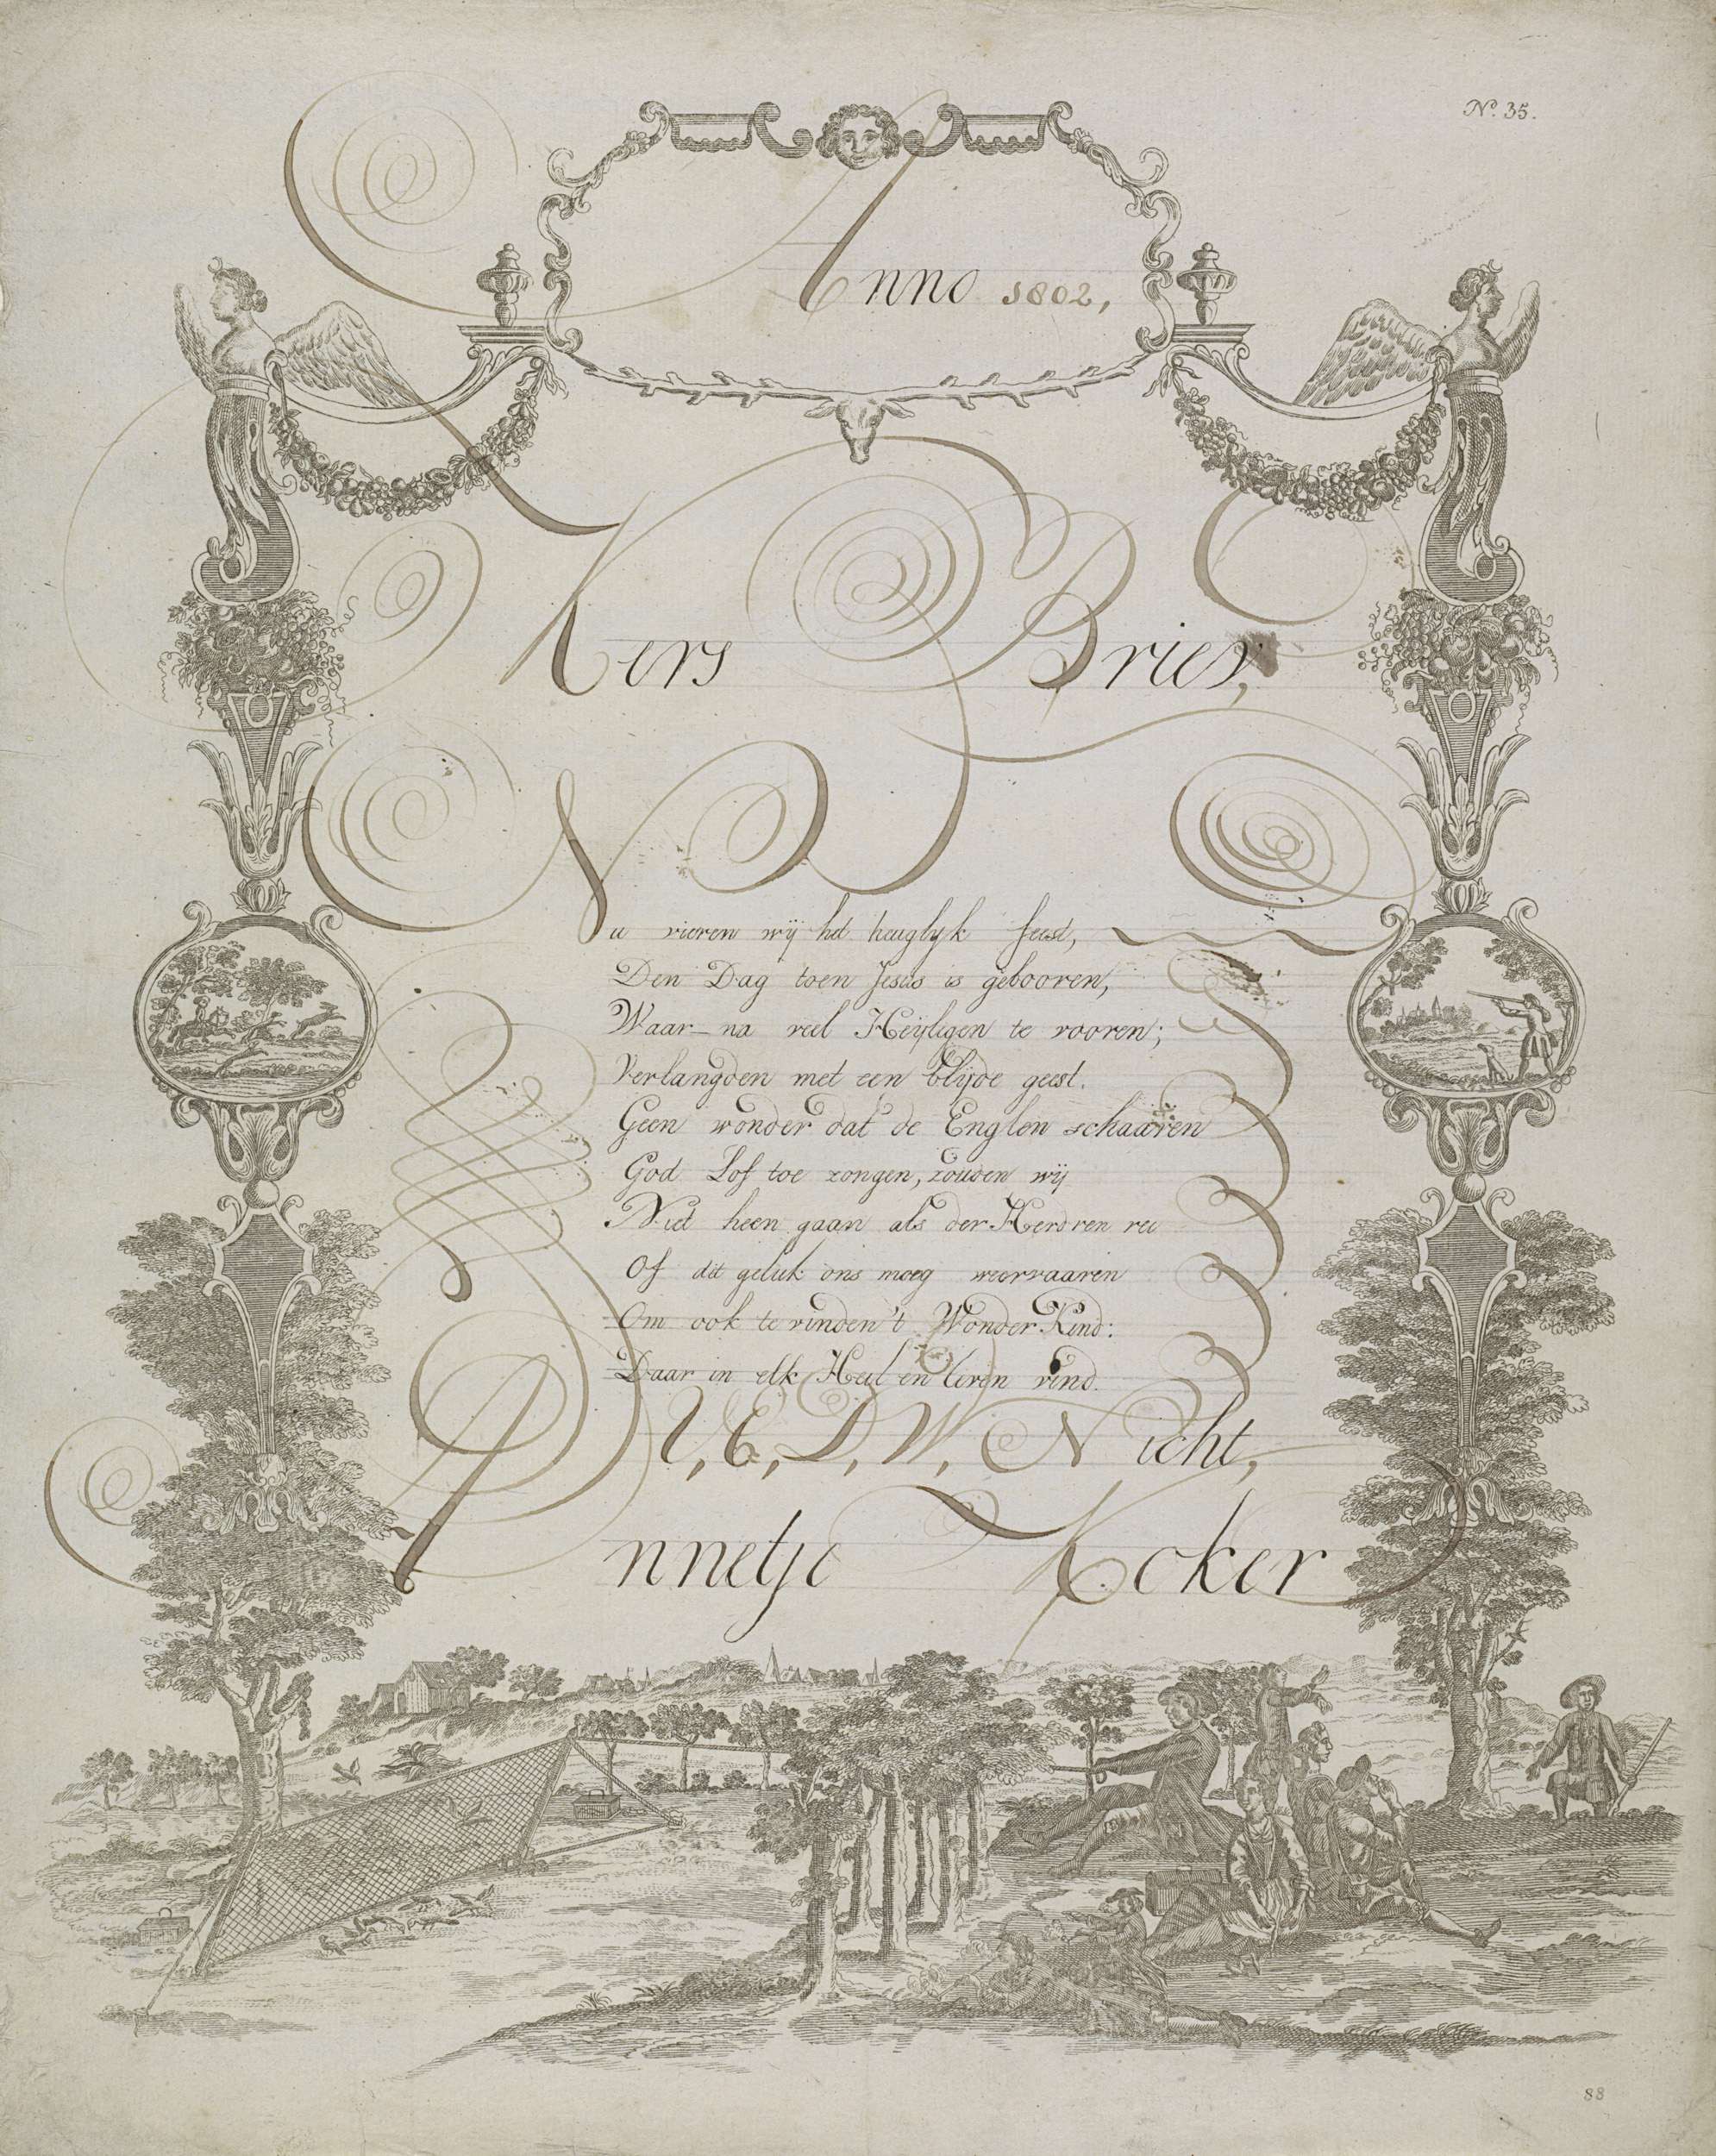 Nº 35.
Anno 1802,
Kers Brief,
Nu vieren wij het heuglyk feest,
Den Dag toen Jesus is gebooren,
Waar-na veel Heijligen te vooren;
Verlangden met een blijde geest.
Geen wonder dat de Englen schaaren
God Lof toe zongen, zouden wij
Niet heen gaan als der Herdren rei
Of dit geluk ons moeg weervaaren
Om ook te vinden 't Wonder Kind:
Daar in elk Heil en leven vind.
U, E, D, W, Nicht,
Annetje Koker
88